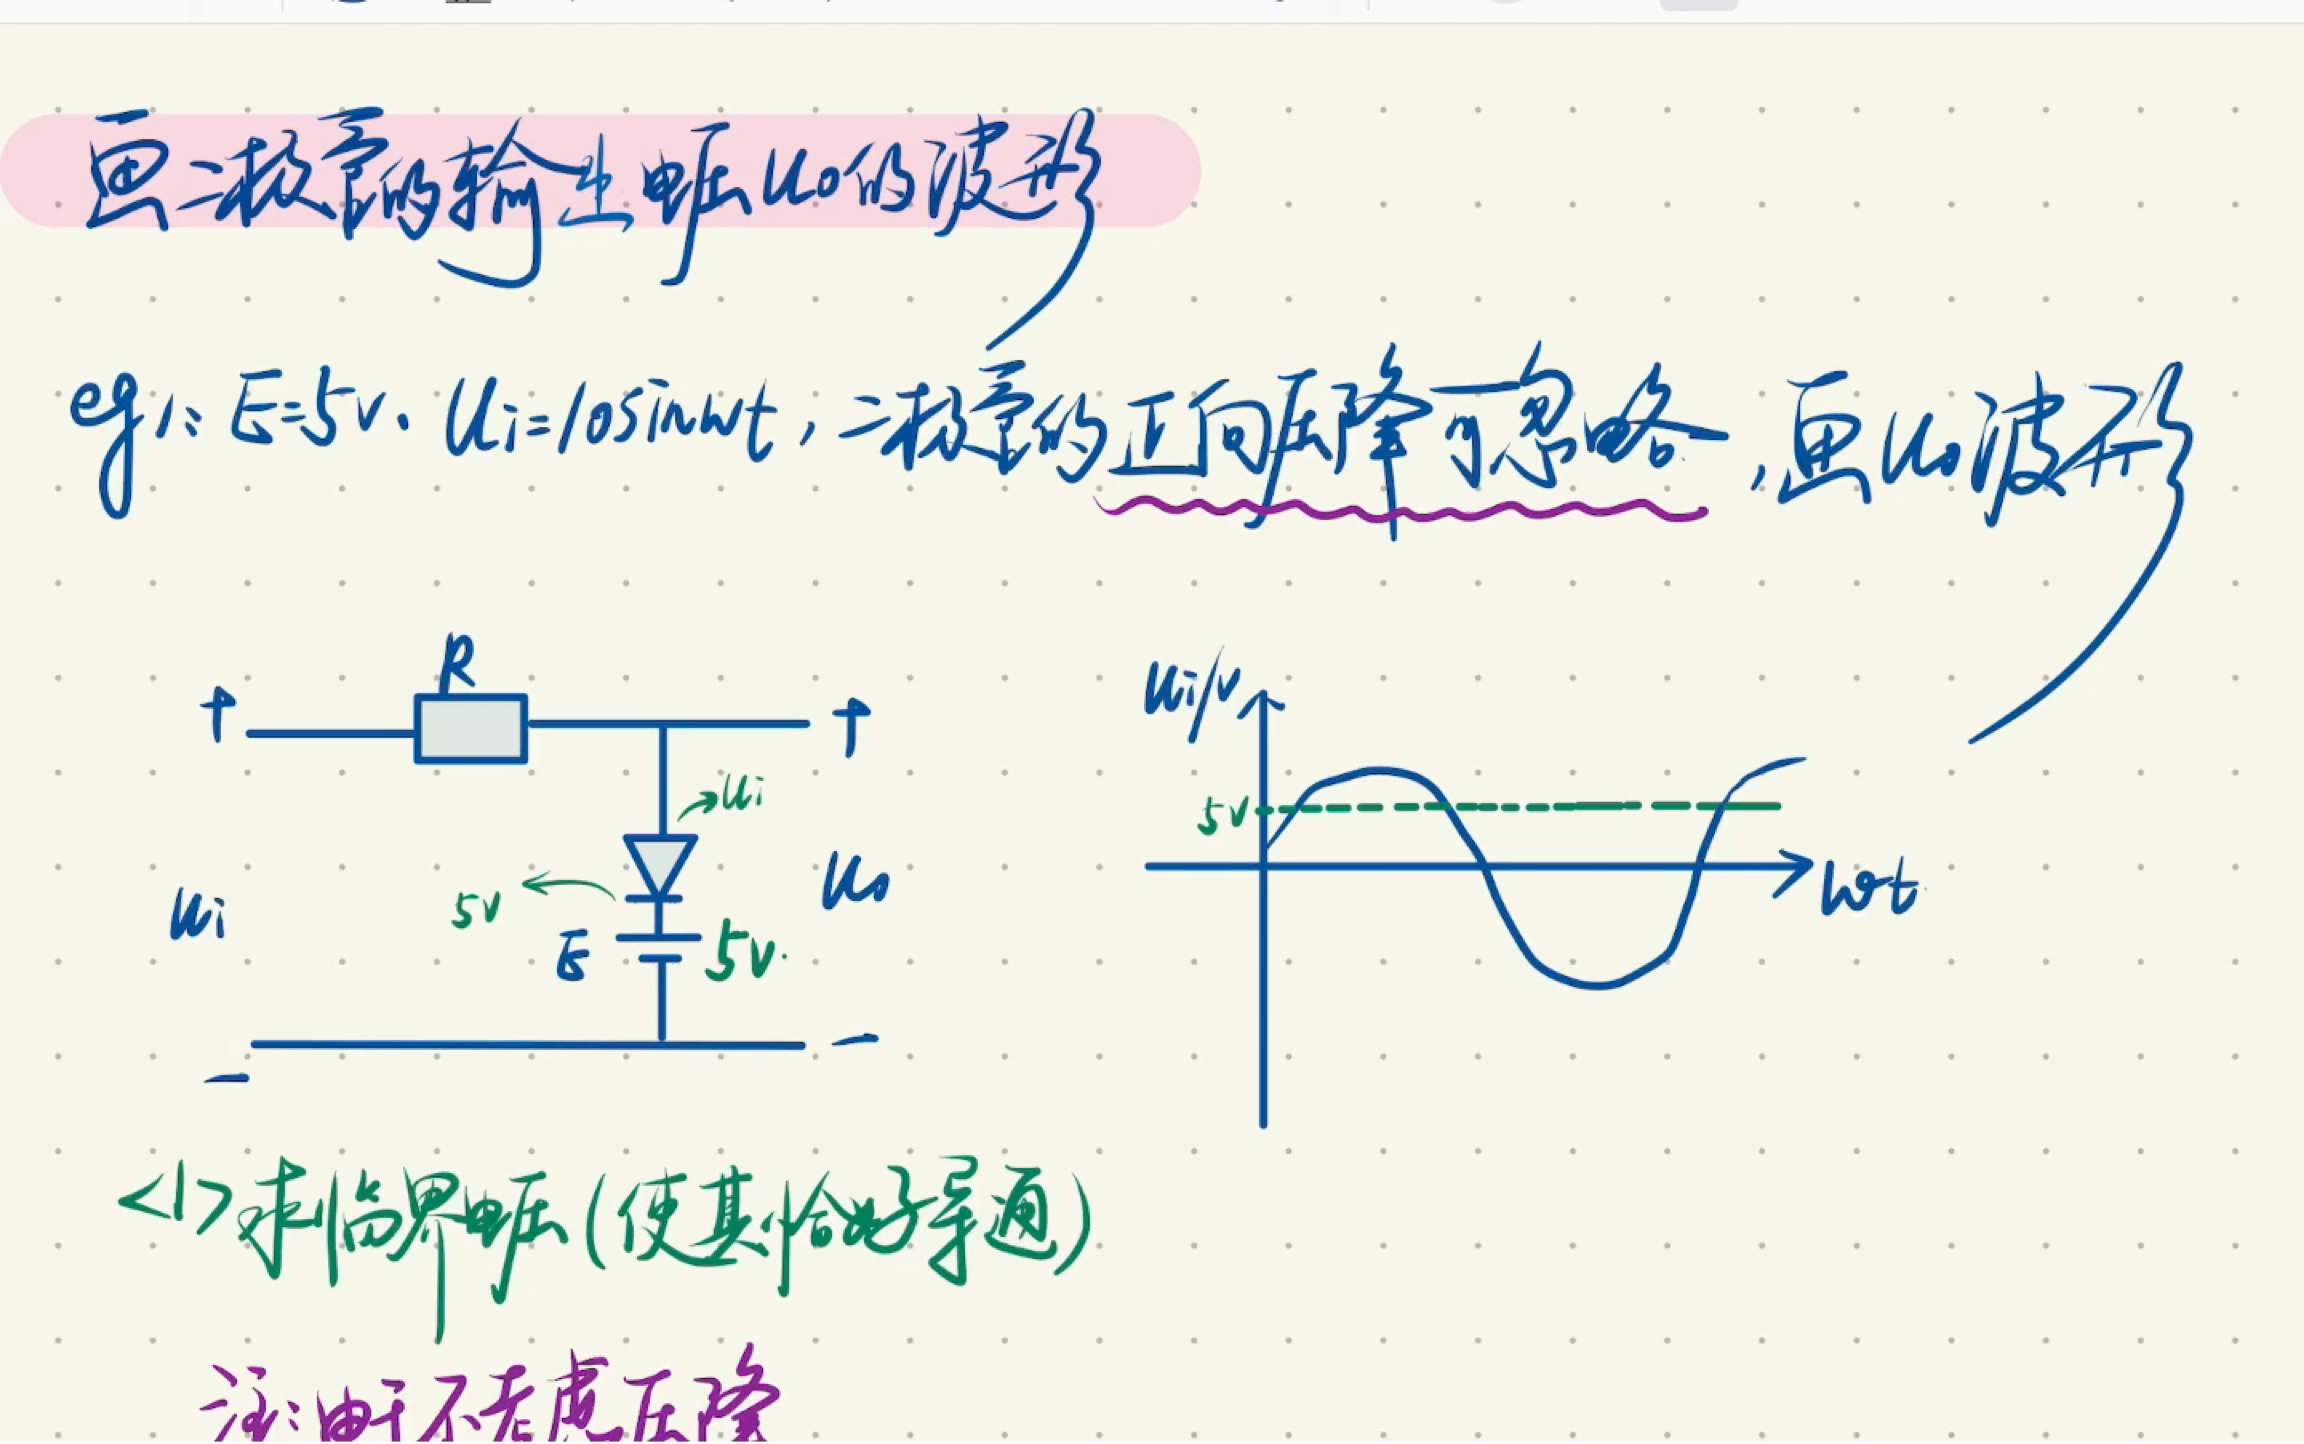 画二极管的输出电压uo的波形
eg1: E=5v. ui=10sinwt,二极管的正向压降可忽略,画uo波形
R
+
+
ui
5v
E
5v.
ui
uo
-
-
ui/v
5v
wt
<1>求临界电压(使其恰好导通)
注:由于不考虑压降